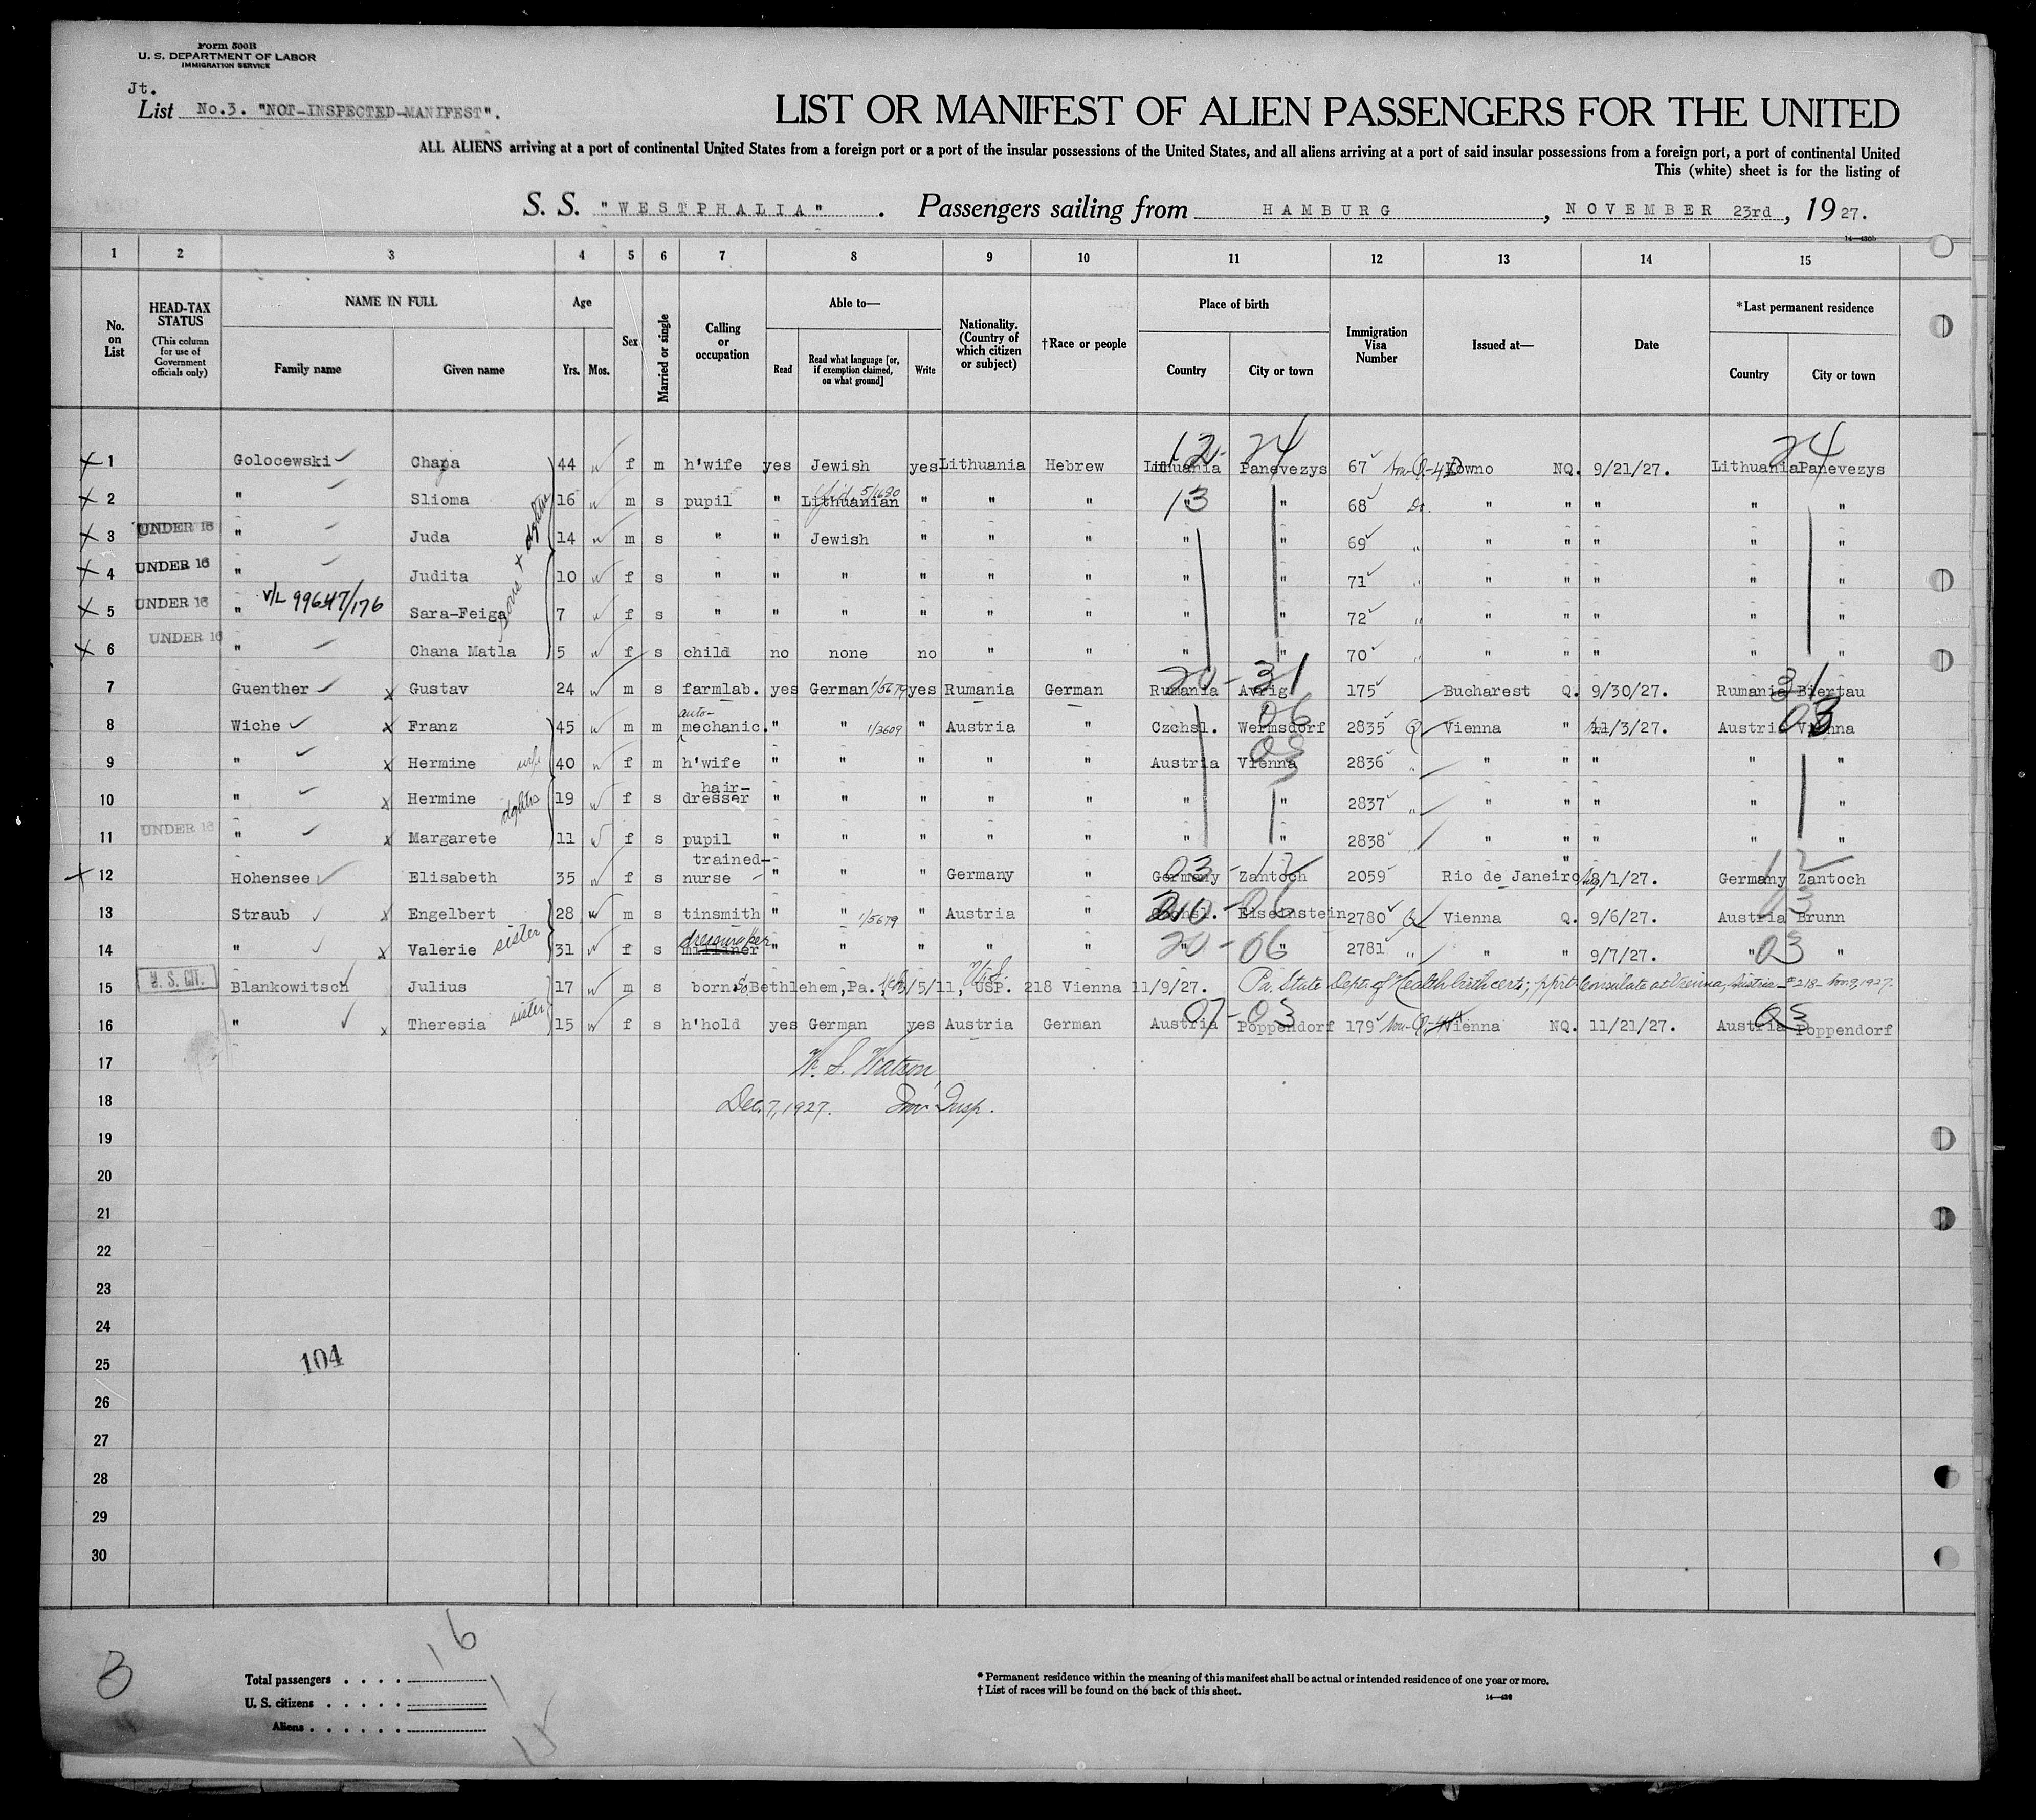 Form 500B
U. S. DEPARTMENT OF LABOR
IMMIGRATION SERVICE
Jt.
List No.3. "NOT-INSPECTED-MANIFEST".
LIST OR MANIFEST OF ALIEN PASSENGERS FOR THE UNITED
ALL ALIENS arriving at a port of continental United States from a foreign port or a port of the insular possessions of the United States, and all aliens arriving at a port of said insular possessions from a foreign port, a port of continental United
This (white) sheet is for the listing of
S. S. "WESTPHALIA". Passengers sailing from HAMBURG, NOVEMBER 23rd, 1927.
14—430b
1 2 3 4 5 6 7 8 9 10 11 12 13 14 15
No. on List
HEAD-TAX STATUS (This column for use of Government officials only)
NAME IN FULL Family name Given name
Age Yrs. Mos.
Sex
Married or single
Calling or occupation
Able to— Read Read what language [or, if exemption claimed, on what ground] Write
Nationality. (Country of which citizen or subject)
†Race or people
Place of birth Country City or town
Immigration Visa Number
Issued at—
Date
*Last permanent residence Country City or town
12 24 24
X 1 Golocewski Chaja 44 f m h'wife yes Jewish yes Lithuania Hebrew Lithuania Panevezys 67 Non-Q-4D Kowno NQ. 9/21/27. Lithuania Panevezys
X 2 " Slioma 16 m s pupil " Lithuanian " " " 13 " 68 Do. " " " " "
X 3 UNDER 16 " Juda 14 m s " " Jewish " " " " " 69 " " " " " "
X 4 UNDER 16 " Judita 10 f s " " " " " " " " 71 " " " " " "
X 5 UNDER 16 " V/L 99647/176 Sara-Feiga 7 f s " " " " " " " " 72 " " " " " "
X 6 UNDER 16 " Chana Matla 5 f s child no none no " " " " 70 " " " " "
sons & dghters
20-31 31
7 Guenther x Gustav 24 m s farmlab. yes German 1/5679 yes Rumania German Rumania Avrig 175 Bucharest Q. 9/30/27. Rumania Biertau
06 03
8 Wiche x Franz 45 m m auto-mechanic. " " 1/3609 " Austria " Czchsl. Wermsdorf 2835 Q Vienna " 11/3/27. Austria Vienna
03
9 " x Hermine wife 40 f m h'wife " " " " " Austria Vienna 2836 " " " " "
10 " x Hermine dghters 19 f s hair-dresser " " " " " " " 2837 " " " " " "
11 UNDER 16 " x Margarete 11 f s pupil " " " " " " " 2838 " " " " "
03-12 12
X 12 Hohensee Elisabeth 35 f s trained-nurse " " " Germany " Germany Zantoch 2059 Rio de Janeiro " 8/1/27. Germany Zantoch
20-06 03
13 Straub x Engelbert 28 m s tinsmith " " 1/5679 " Austria " Czchsl. Eisenstein 2780 Q Vienna Q. 9/6/27. Austria Brunn
14 " x Valerie sister 31 f s dressmaker milliner " " " " " 20-06 " " 2781 " " " 9/7/27. " 03 "
15 U. S. CIT. Blankowitsch Julius 17 m s born So. Bethlehem, Pa., 3/5/11, U.S. USP. 218 Vienna 11/9/27. Pa. State Dept. of Health birth cert; pprt Consulate at Vienna, Austria-#218-Nov 9, 1927.
07-03 03
16 " x Theresia sister 15 f s h'hold yes German yes Austria German Austria Poppendorf 179 Non-Q-4A Vienna NQ. 11/21/27. Austria Poppendorf
17 W. S. Watson
18 Dec. 7, 1927. Imm Insp.
19
20
21
22
23
24
25 104
26
27
28
29
30
3
Total passengers . . . . 16
U. S. citizens . . . . . 1
Aliens . . . . . . 15
* Permanent residence within the meaning of this manifest shall be actual or intended residence of one year or more.
† List of races will be found on the back of this sheet.
14—430